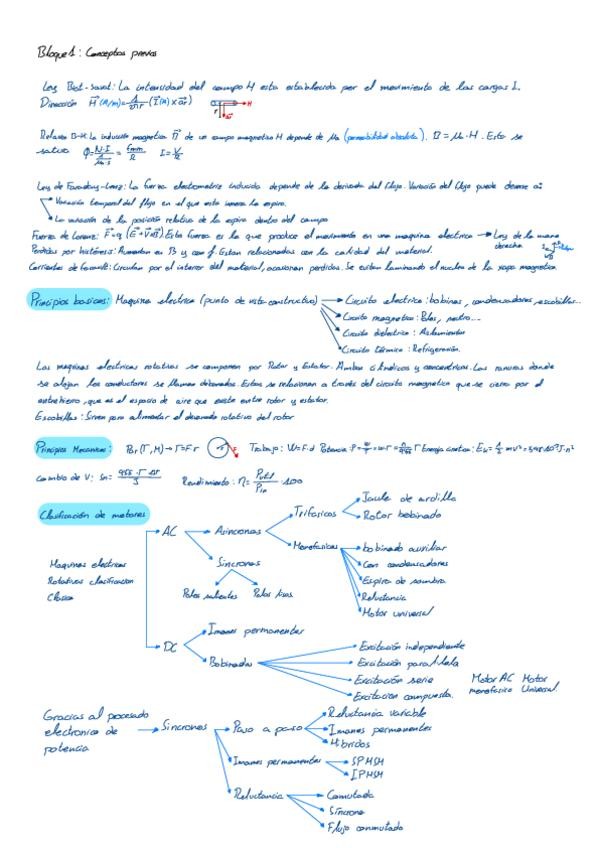 Bloque 1: Conceptos previos
Ley Biot-Savat: La intensidad del campo H esta establecida por el movimiento de las cargas I.
Dirección H (A/m) = 1/2πr (I(A) × ar)
Relacion B-H: La induccion magnetica B de un campo magnetico H depende de μa (permeabilidad absoluta). B = μa · H. Esto se
satura φ = N·I = fmm/R I = V/R
Ley de Faraday-Lenz: La fuerza electromotriz inducida depende de la derivada del flujo. Variación del flujo puede deberse a:
Variación temporal del flujo en el que esta inmersa la espira.
La variación de la posición relativa de la espira dentro del campo
Fuerza de Lorenz: F = q (E + V×B). Esta fuerza es la que produce el movimiento en una maquina electrica → Ley de la mano
derecha
Perdidas por histéresis: Aumentan en B y con f. Estan relacionadas con la calidad del material.
Corrientes de Foucault: Circulan por el interior del material, ocasionan perdidas. Se evitan laminando el nucleo de la xapa magnetica
Principios basicos: Maquina electrica (punto de vista constructivo) → Circuito electrico: bobinas, condensadores, escobillas...
Circuito magnetico: Polos, neutro...
Circuito dielectrico: Aislamientos
Circuito térmico: Refrigeración.
Las maquinas electricas rotativas se componen por Rotor y Estator. Ambos cilindricos y concentricos. Las ranuras donde
se alojan los conductores se llaman devanados. Estos se relacionan a través del circuito magnetico que se cierra por el
entrehierro, que es el espacio de aire que existe entre rotor y estator.
Escobillas: Sirven para alimentar el devanado rotativo del rotor
Principios Mecanicos: Par (Γ, M) → Γ = F·r Trabajo: W = F·d Potencia: P = Energia cinetica: Ek = 1/2 mv²
Cambio de V: Rendimiento: η = Putil/Pin · 100
Clasificación de motores
Maquinas electricas
Rotativas clasificacion
Clasica
AC
Asincronas
Trifasicos
Jaula de ardilla
Rotor bobinado
Monofasicos
bobinado auxiliar
Con condensadores
Espira de sombra
Reluctancia
Motor universal
Sincronas
Polos salientes Polos lisos
DC
Imanes permanentes
Bobinados
Excitación independiente
Excitación paralela
Excitación serie
Excitacion compuesta.
Motor AC Motor
monofasico Universal.
Gracias al procesado
electronico de
potencia
Sincronos
Paso a paso
Reluctancia variable
Imanes permanentes
Hibridos
Imanes permanentes
SPMSM
IPMSM
Reluctancia
Conmutada
Síncrona
Flujo conmutado